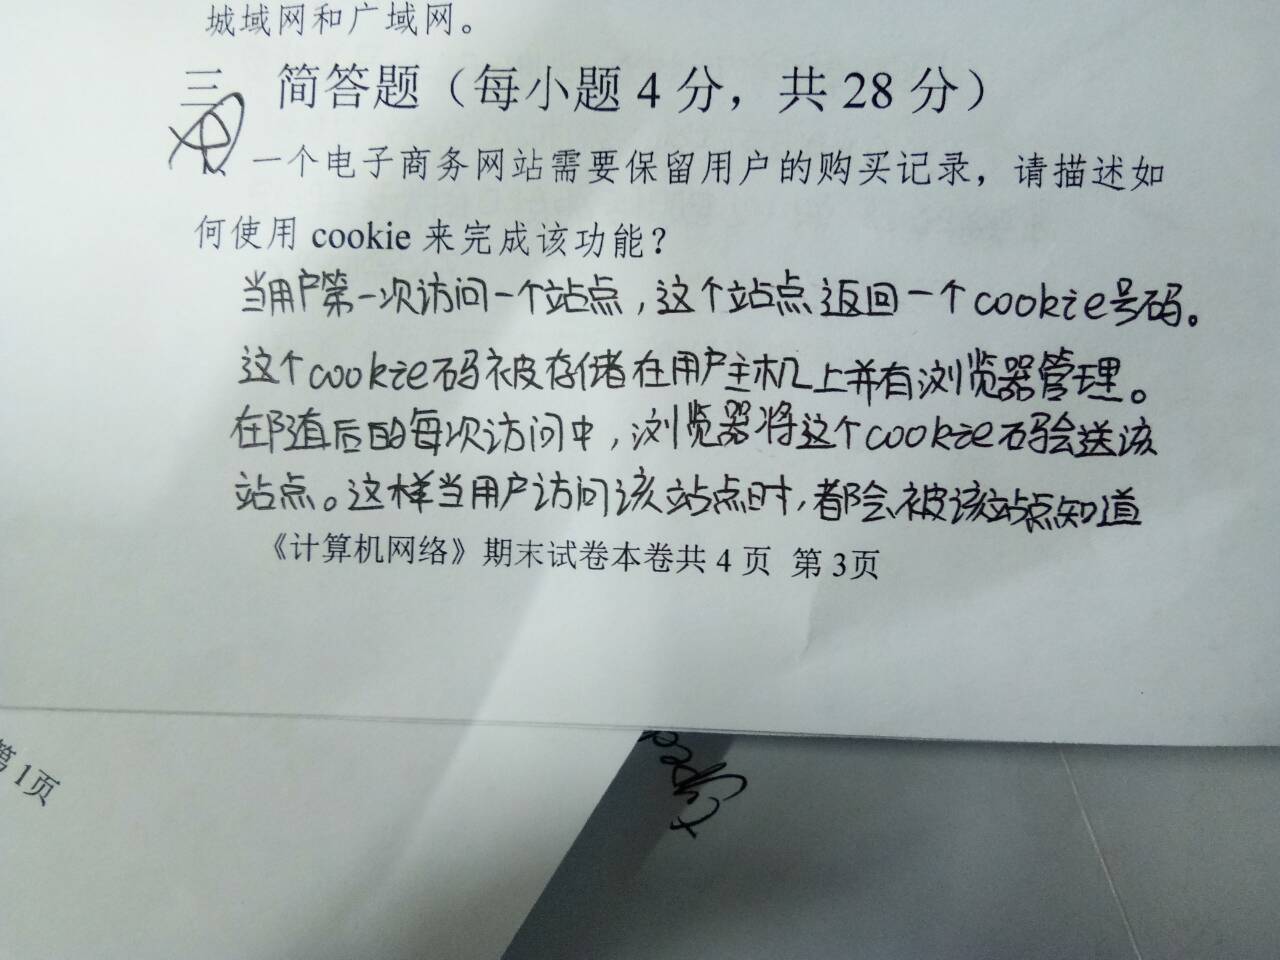 城域网和广域网。
三 简答题（每小题 4 分，共 28 分）
一个电子商务网站需要保留用户的购买记录，请描述如
何使用 cookie 来完成该功能？
当用户第一次访问一个站点，这个站点返回一个cookie号码。
这个cookie码被存储在用户主机上并有浏览器管理。
在随后的每次访问中，浏览器将这个cookie码会送该
站点。这样当用户访问该站点时，都会被该站点知道
《计算机网络》期末试卷本卷共 4 页 第 3页
第 1页